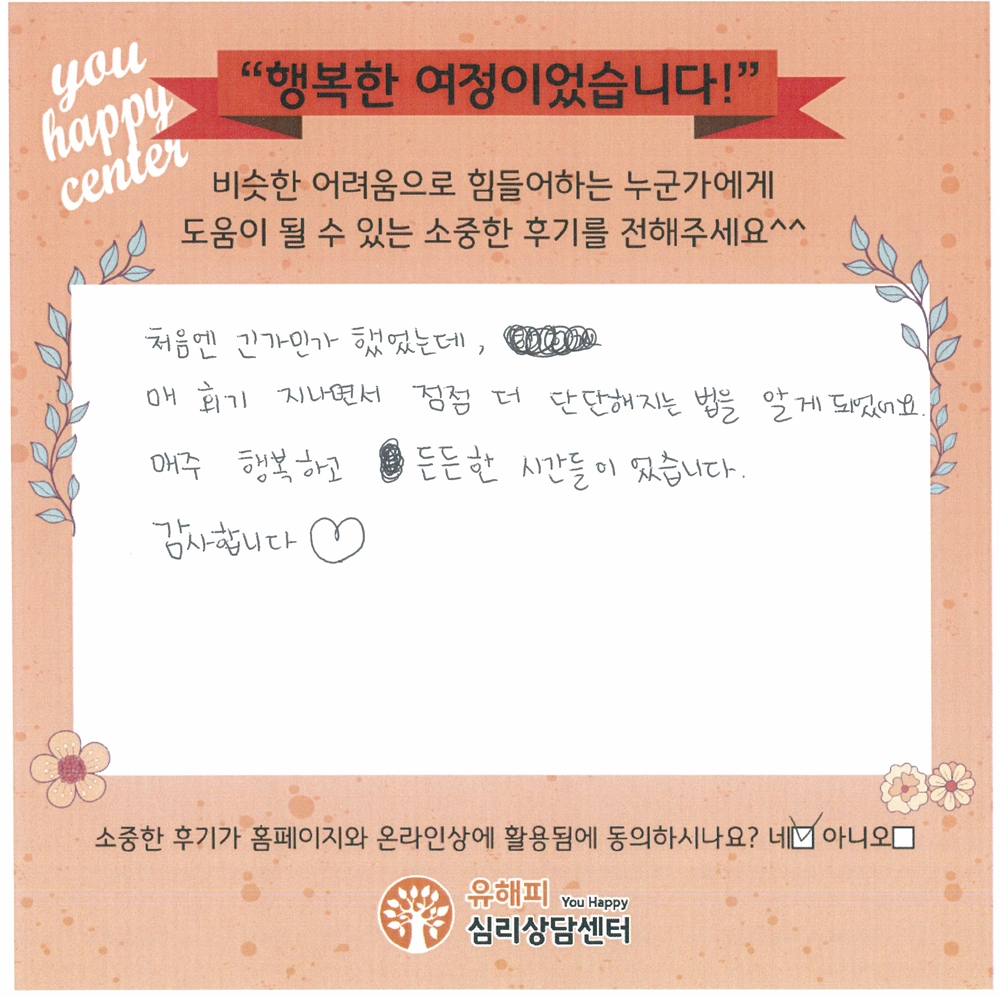 you
happy
center
“행복한 여정이었습니다!”
비슷한 어려움으로 힘들어하는 누군가에게
도움이 될 수 있는 소중한 후기를 전해주세요^^
처음엔 긴가민가 했었는데,
매 회기 지나면서 점점 더 단단해지는 법을 알게 되었어요.
매주 행복하고 든든한 시간들이 었습니다.
감사합니다 ♡
소중한 후기가 홈페이지와 온라인상에 활용됨에 동의하시나요? 네☑ 아니오□
유해피 You Happy
심리상담센터